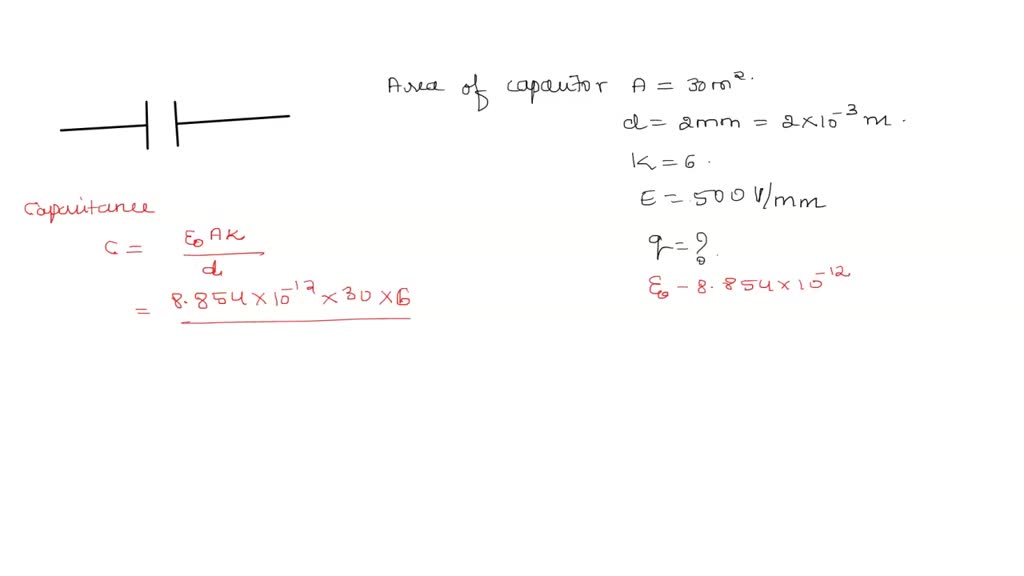 Area of capacitor A = 30m².
d = 2mm = 2×10⁻³ m.
K = 6.
E = 500 V/mm
q = ?
ε₀ - 8.854×10⁻¹²
Capacitance
C = ε₀AK / d
= 8.854×10⁻¹² × 30 × 6